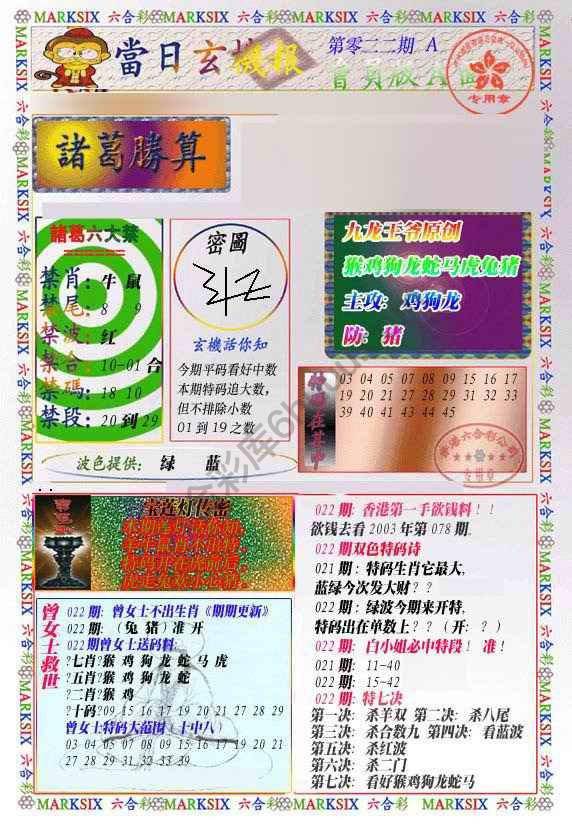 MARKSIX 六合彩 MARKSIX 六合彩 MARKSIX 六合彩 MARKSIX 六合彩
當日玄機報
第零二二期 A
會員版 A 面
专用章
諸葛勝算
諸葛六大禁
禁肖：牛 鼠
禁尾：8 9
禁波：红
禁合：10-01 合
禁碼：18 10
禁段：20 到 29
密圖
玄機話你知
今期平码看好中数
本期特码追大数，
但不排除小数
01 到 19 之数
九龙王爷原创
猴鸡狗龙蛇马虎兔猪
主攻：鸡狗龙
防：猪
特码在其中
03 04 05 07 08 09 15 16 17
19 20 21 27 28 29 31 32 33
39 40 41 43 44 45
香港六合彩公司
专用章
波色提供： 绿 蓝
宝莲灯传密
曾女士救世
022 期：曾女士不出生肖《期期更新》
022 期：（兔 猪）准 开
022 期曾女士送码料：
?七肖?猴 鸡 狗 龙 蛇 马 虎
?五肖?猴 鸡 狗 龙 蛇
?二肖?猴 鸡
?十码?09 15 16 17 19 20 21 27 28 29
曾女士特码大范围（十中八）
03 04 05 07 08 09 15 16 17 19 20 21
27 28 29 31 32 33 39
022 期：香港第一手欲钱料！！
欲钱去看 2003 年第 078 期.
022 期双色特码诗
021 期：特码生肖它最大,
蓝绿今次发大财？？
022 期：绿波今期来开特,
特码出在单数上？？（开：？）
022 期：白小姐必中特段！ 准！
021 期：11-40
022 期：15-42
022 期：特七决
第一决：杀羊双 第二决：杀八尾
第三决：杀合数九 第四决：看蓝波
第五决：杀红波
第六决：杀二门
第七决：看好猴鸡狗龙蛇马
MARKSIX 六合彩 MARKSIX 六合彩 MARKSIX 六合彩 MARKSIX 六合彩